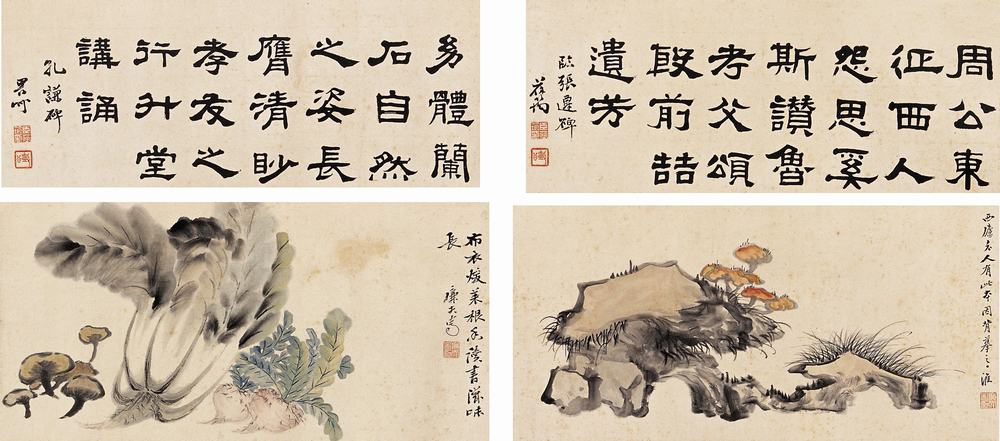 幼體蘭
石自然
之姿長
膺清眇
孝友之
行升堂
講誦
孔謙碑
周公東
征西人
怨思奚
斯讚魯
考父頌
殷前喆
遺芳
臨張遷碑
布衣煖菜根香讀書滋味
長
西廬老人有此本因背摹之